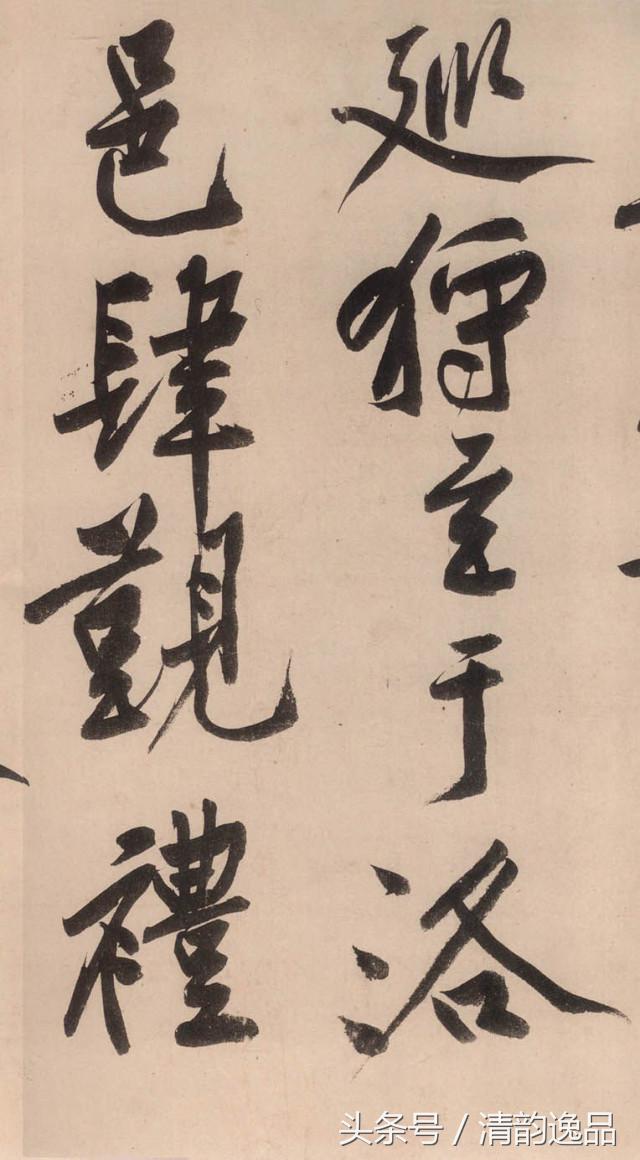 廵狩至于洛
邑肆覲禮
头条号 / 清韵逸品